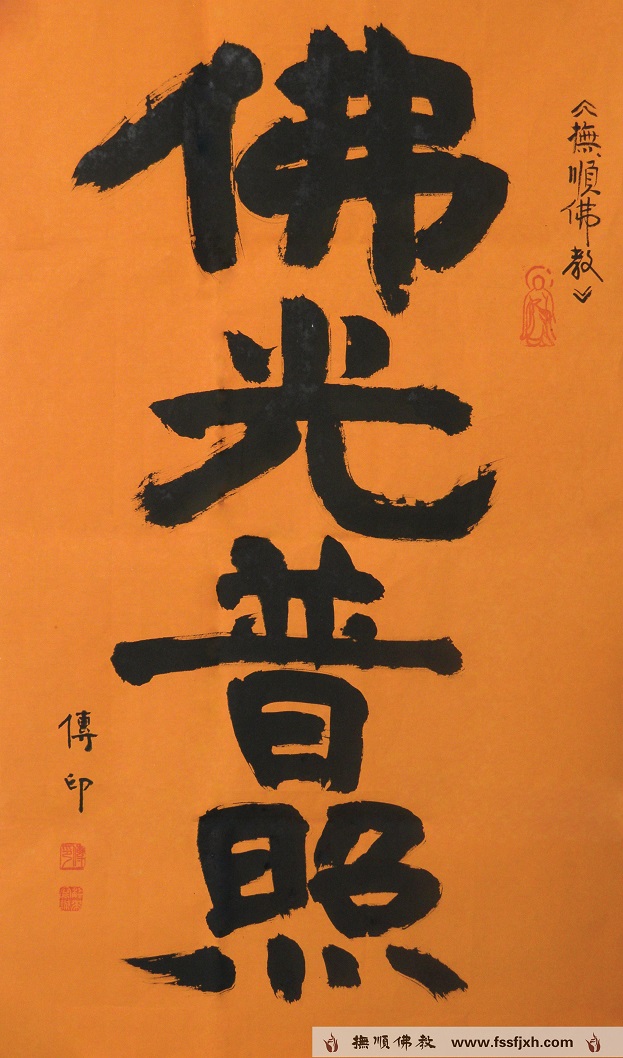 《撫順佛教》
佛光普照
傳印
撫順佛教 www.fssfjxh.com